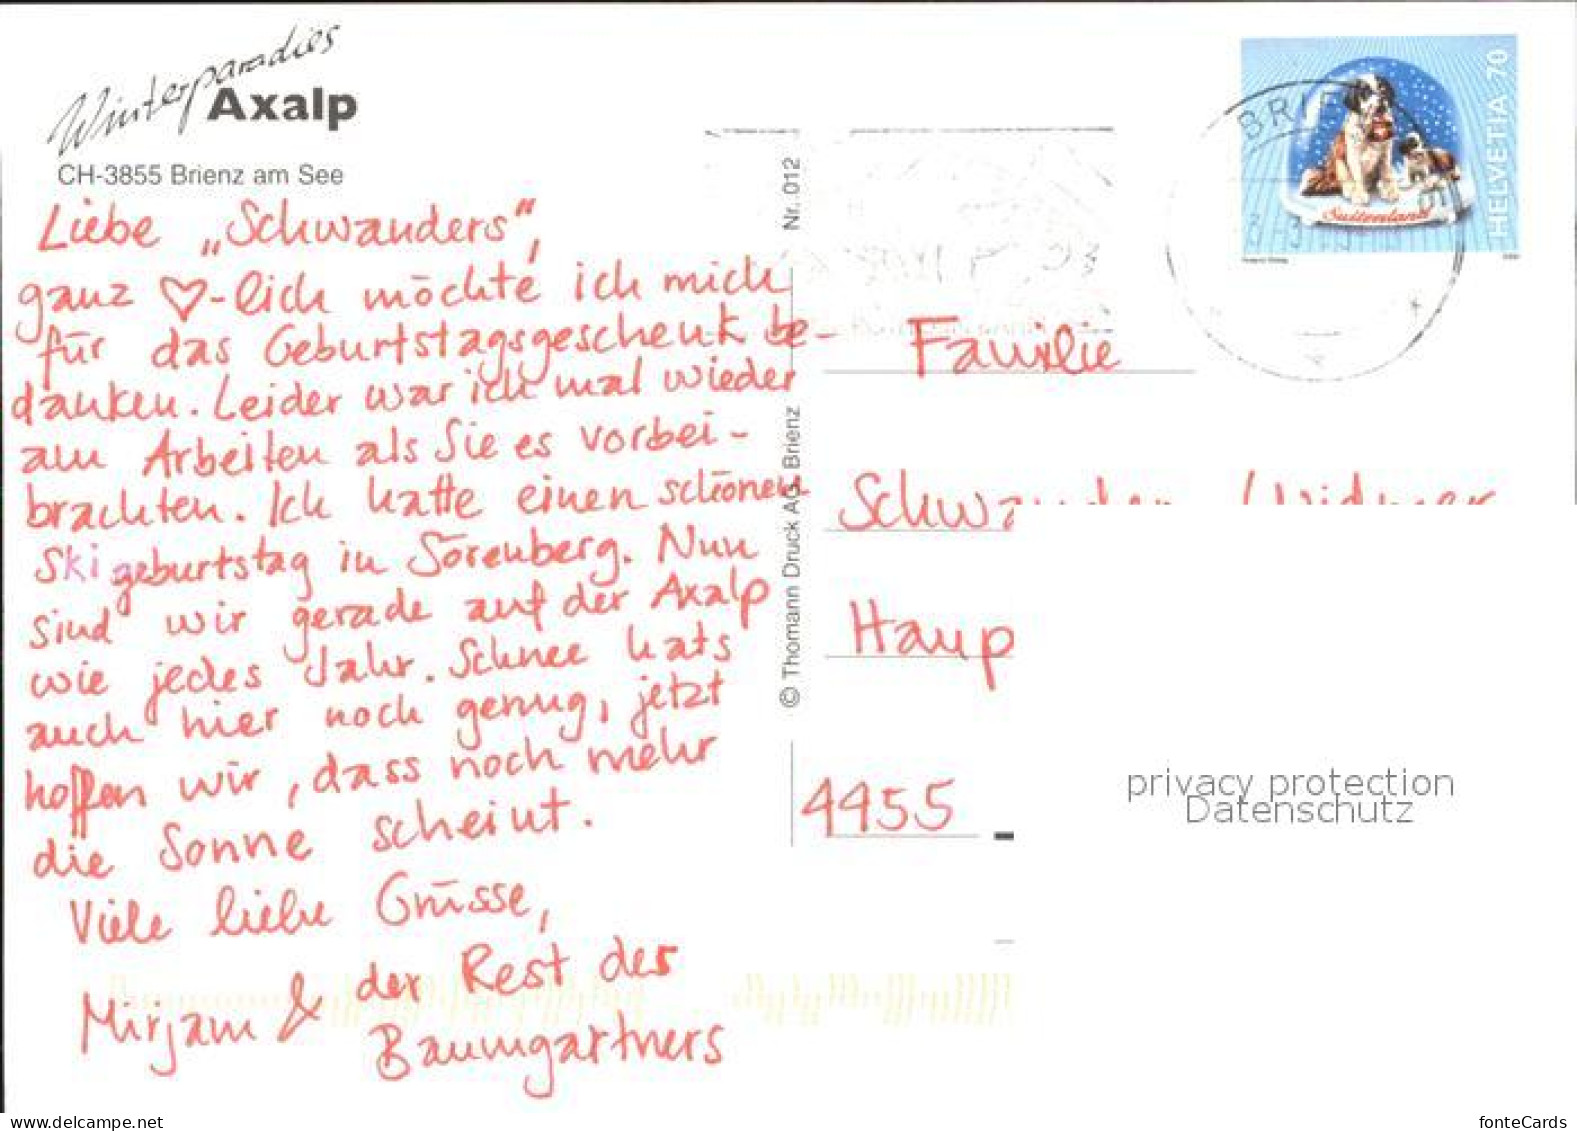 Winterparadies
Axalp
CH-3855 Brienz am See
Liebe „Schwanders“,
ganz ♡-lich möchte ich mich
für das Geburtstagsgeschenk be-
danken. Leider war ich mal wieder
am Arbeiten als Sie es vorbei-
brachten. Ich hatte einen schönen
Skigeburtstag in Sörenberg. Nun
sind wir gerade auf der Axalp
wie jedes Jahr. Schnee hats
auch hier noch genug, jetzt
hoffen wir, dass noch mehr
die Sonne scheint.
Viele liebe Grüsse,
Mirjam & der Rest des
Baumgartners
© Thomann Druck AG, Brienz
Nr. 012
HELVETIA 70
Suitenland
BRIE
Familie
Schwander
Haup
4455
privacy protection
Datenschutz
www.delcampe.net
fonteCards